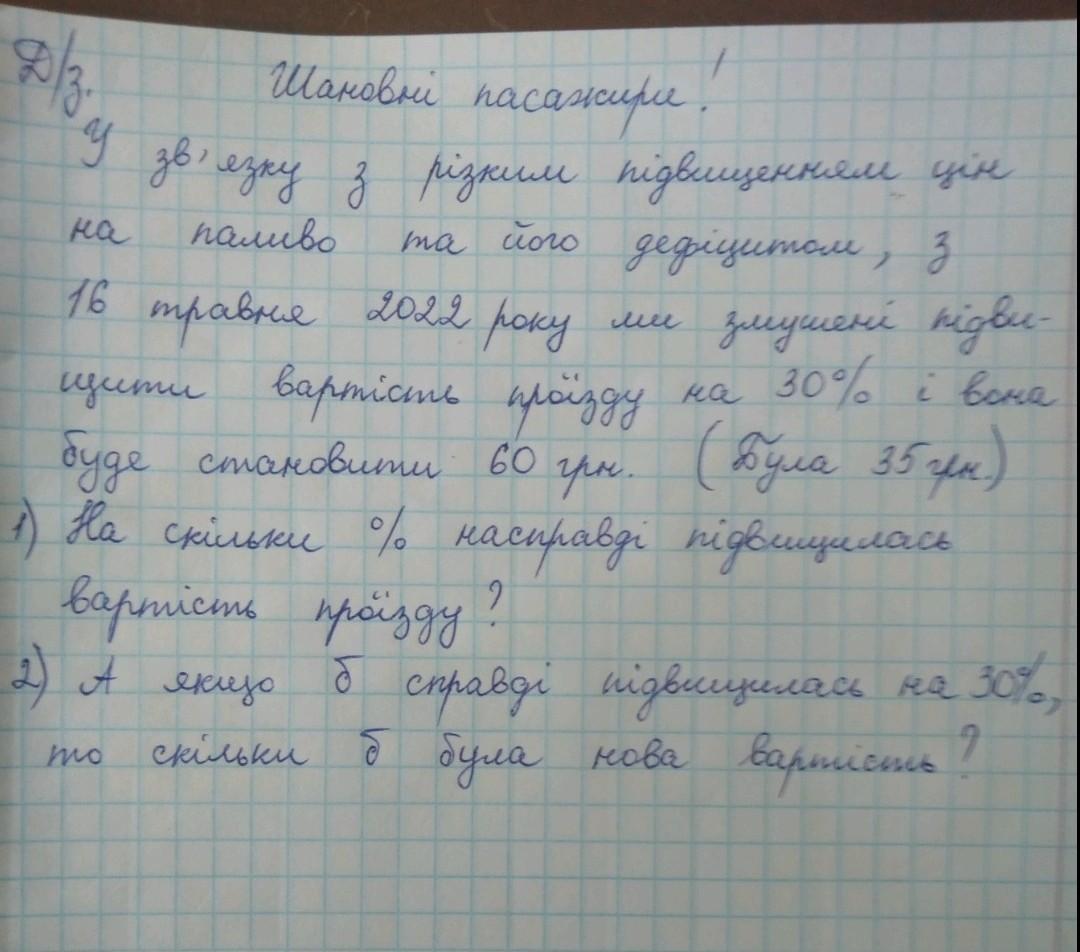 Д/з.
Шановні пасажири!
У зв'язку з різким підвищенням цін
на паливо та його дефіцитом, з
16 травня 2022 року ми змушені підви-
щити вартість проїзду на 30% і вона
буде становити 60 грн. (Була 35 грн.)
1) На скільки % насправді підвищилась
вартість проїзду?
2) А якщо б справді підвищилась на 30%,
то скільки б була нова вартість?